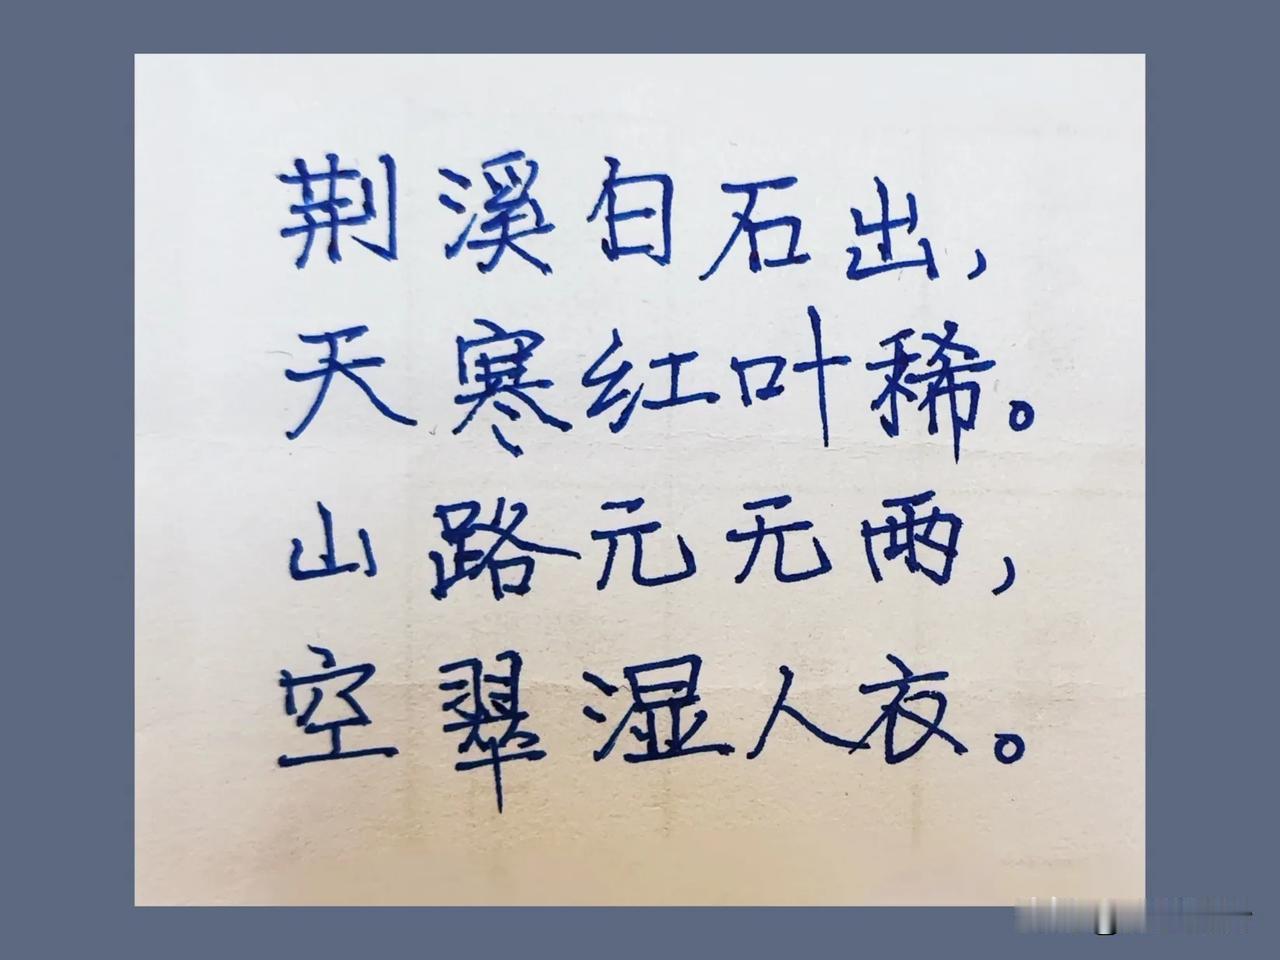 荆溪白石出，
天寒红叶稀。
山路元无雨，
空翠湿人衣。